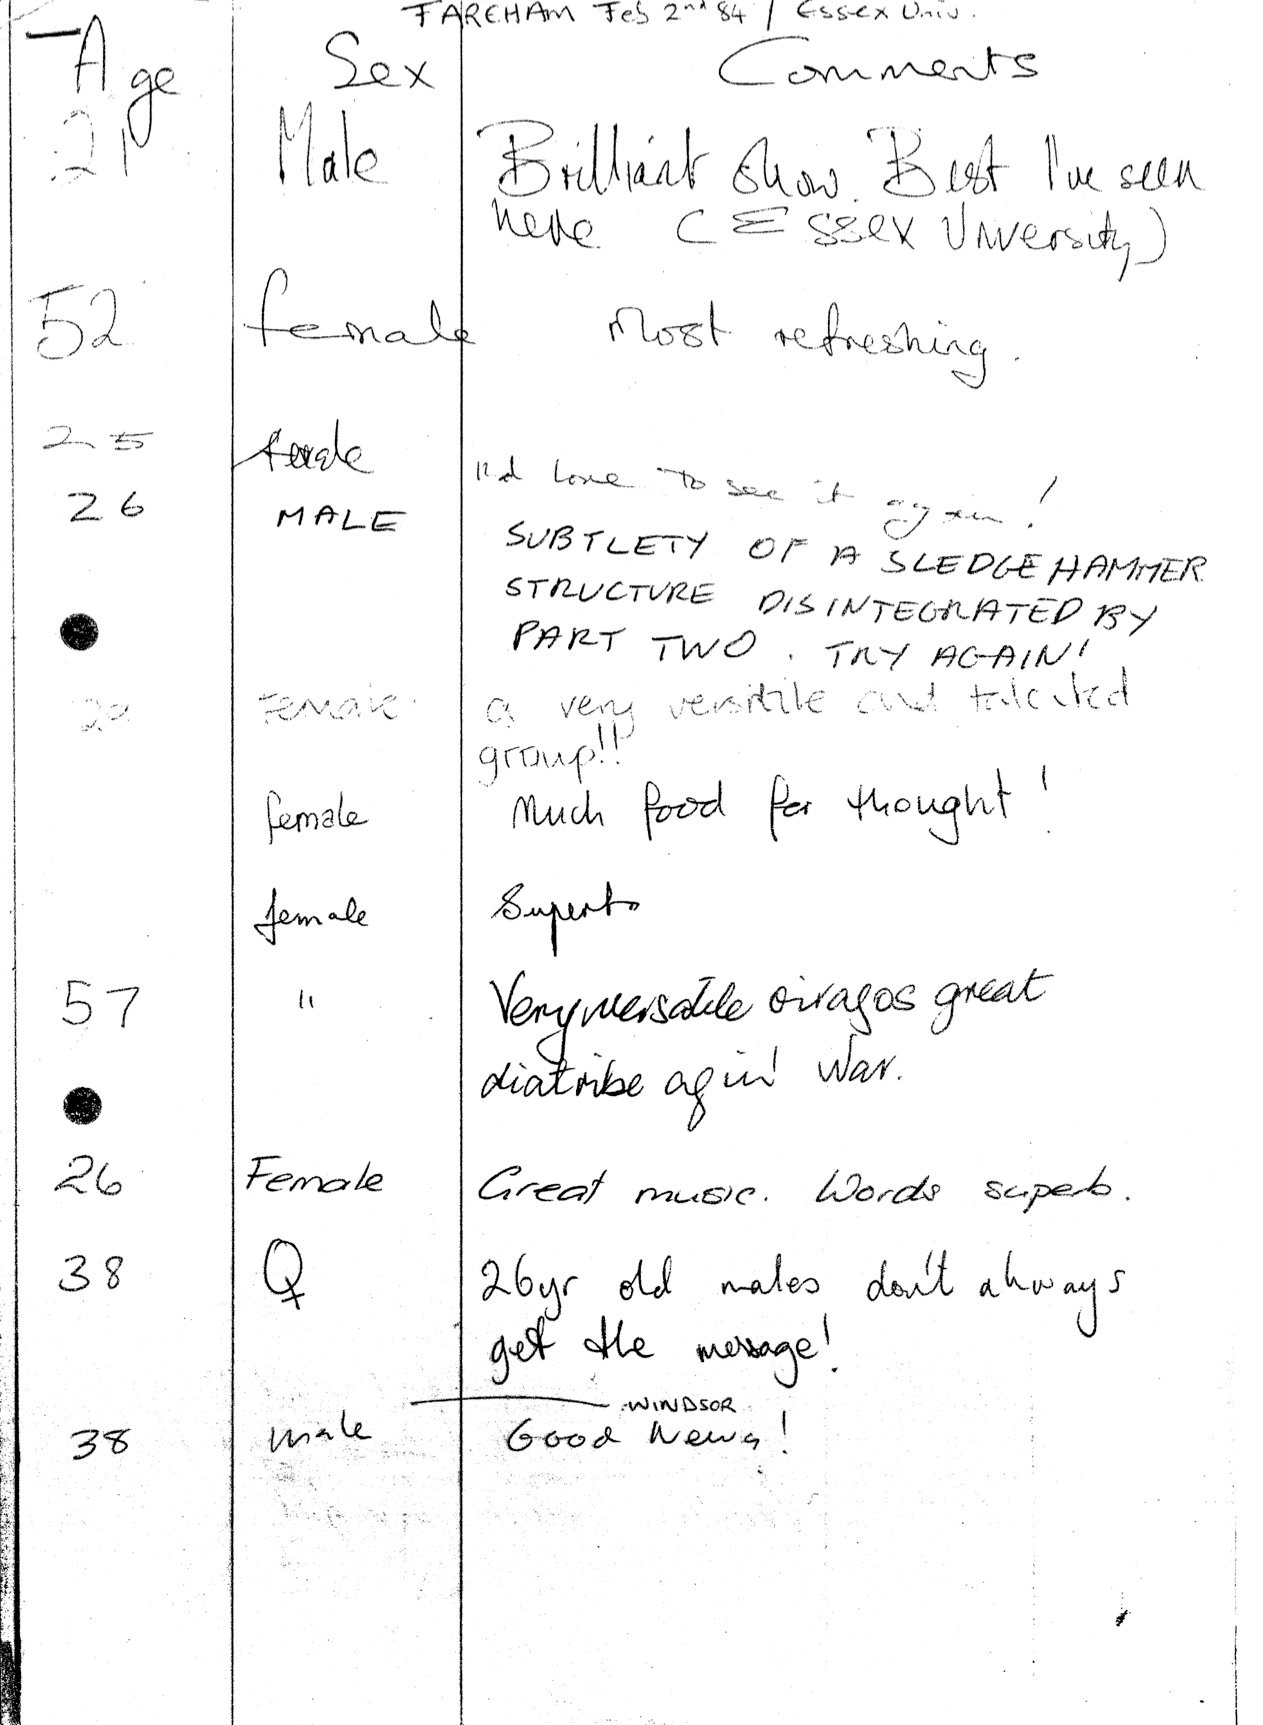 FAREHAM Feb 2nd 84 / Essex Univ.
Age Sex Comments
21 Male Brilliant show. Best I've seen
here (Essex Unversity)
52 female Most refreshing.
25 female I'd love to see it again!
26 MALE SUBTLETY OF A SLEDGEHAMMER
STRUCTURE DISINTEGRATED BY
PART TWO. TRY AGAIN!
29 Female a very versitile and talented
group!!
female Much food for thought!
female Superb
57 " Very versatile viragos great
diatribe agin' war.
26 Female Great music. Words superb.
38 ♀ 26yr old males don't always
get the message!
WINDSOR
38 male Good News!